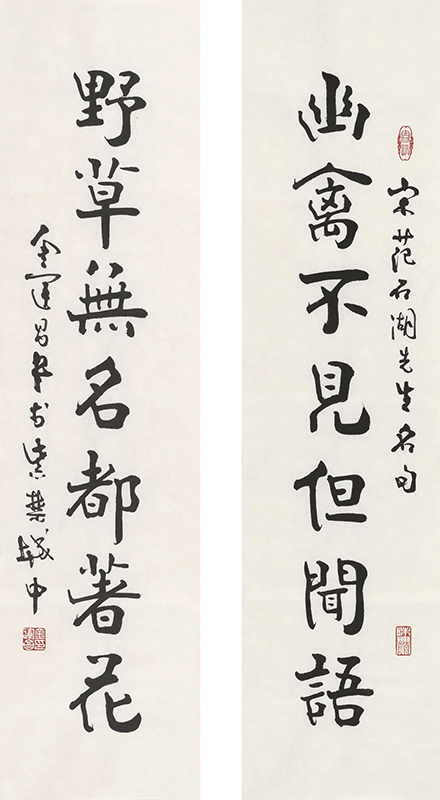 宋范石湖先生名句
幽禽不見但聞語
野草無名都著花
金運昌書於紫禁城中